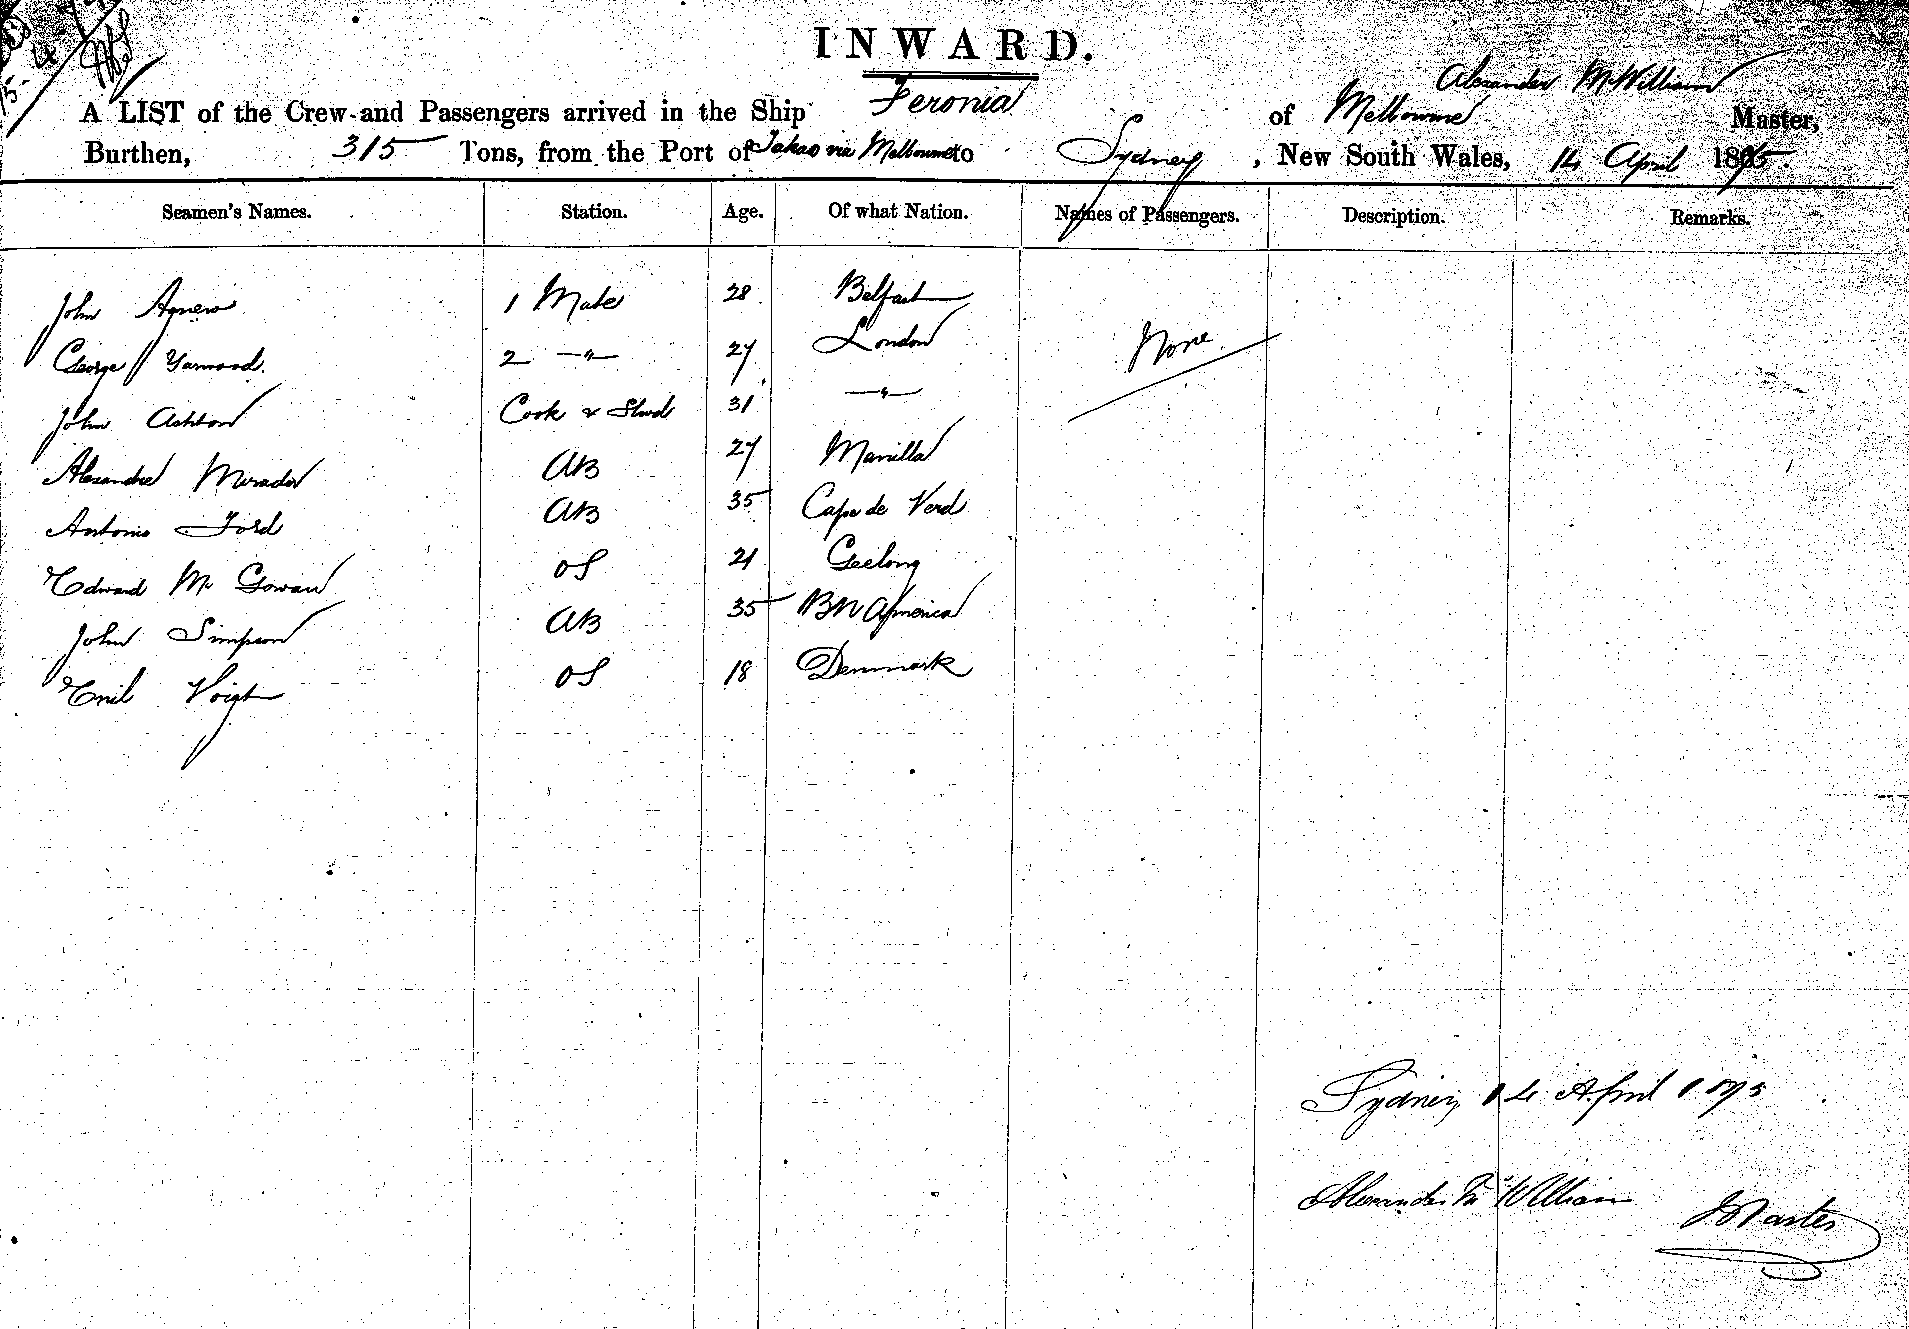 INWARD.
Alexander McWilliam
A LIST of the Crew and Passengers arrived in the Ship Feronia of Melbourne Master,
Burthen, 315 Tons, from the Port of Takao via Melbourne to Sydney, New South Wales, 14 April 1875
Seamen's Names. Station. Age. Of what Nation. Names of Passengers. Description. Remarks.
John Agnew 1 Mate 28 Belfast
George Yarmond 2 —"— 27 London None
John Ashton Cook & Stwd 31 —"—
Alexander Mirador AB 27 Manilla
Antonio Ford AB 35 Cape de Verd
Edward Mc Gowan OS 21 Geelong
John Simpson AB 35 BN America
Emil Voigt OS 18 Denmark
Sydney 14 April 1875
Alexander McWilliam Master